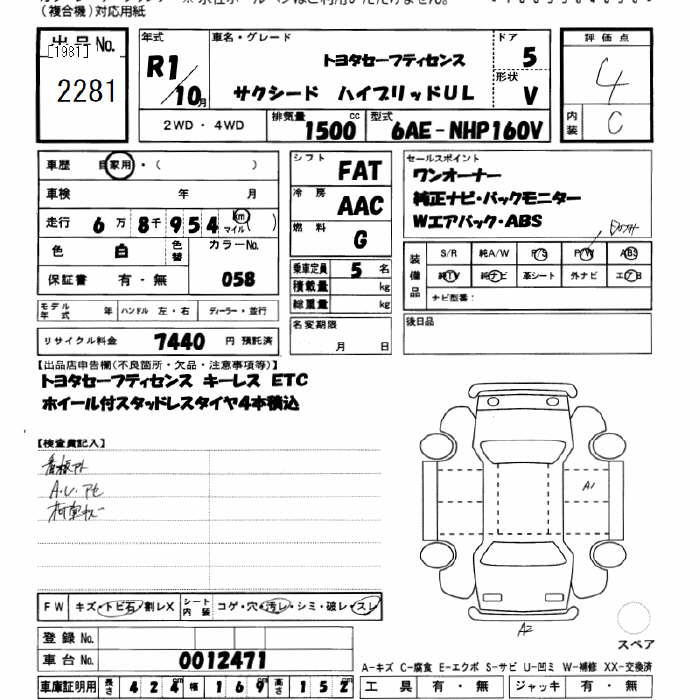 (複合機)対応用紙
出品 No.
[1981]
2281
年式
R1/10月
車名・グレード
トヨタセーフティセンス
サクシード ハイブリッドUL
ドア
5
形状
V
評価点
4
内装
C
2WD・4WD
排気量
1500 cc
型式
6AE-NHP160V
車歴 自家用・( )
車検 年 月
走行 6万8千954 km マイル( )
色 白 色替
カラーNo.
058
保証書 有・無
シフト
FAT
冷房
AAC
燃料
G
乗車定員 5 名
積載量 kg
総重量 kg
セールスポイント
ワンオーナー
純正ナビ・バックモニター
Wエアバック・ABS
装備品
S/R 純A/W P/S P/W ABS
純TV 純ナビ 革シート 外ナビ エアB
ナビ型番:
モデル年式 年 ハンドル 左・右 ディーラー・並行
名変期限
月 日
後日品
リサイクル料金 7440 円 預託済
【出品店申告欄(不良箇所・欠品・注意事項等)】
トヨタセーフティセンス キーレス ETC
ホイール付スタッドレスタイヤ4本積込
【検査員記入】
看板アト
A.U.アセ
A1
A2
FW キズ・トビ石・割レX
シート内装 コゲ・穴・汚レ・シミ・破レ・スレ
登録 No.
車台 No. 0012471
スペア
A-キズ C-腐食 E-エクボ S-サビ U-凹ミ W-補修 XX-交換済
車庫証明用 長さ 424 幅 169 高さ 152
工具 有・無 ジャッキ 有・無